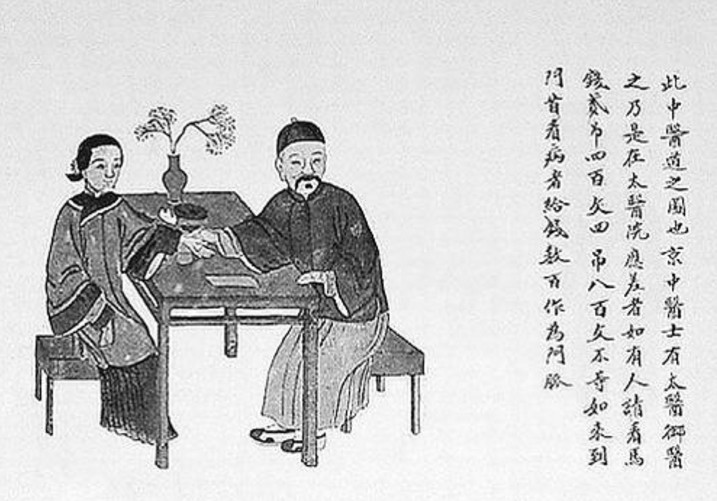 此中醫道之圖也京中醫士有太醫御醫
之乃是在太醫院應差者如有人請看馬
錢貳吊四百文四吊八百文不等如來到
門首看病者給錢數百作為門脈